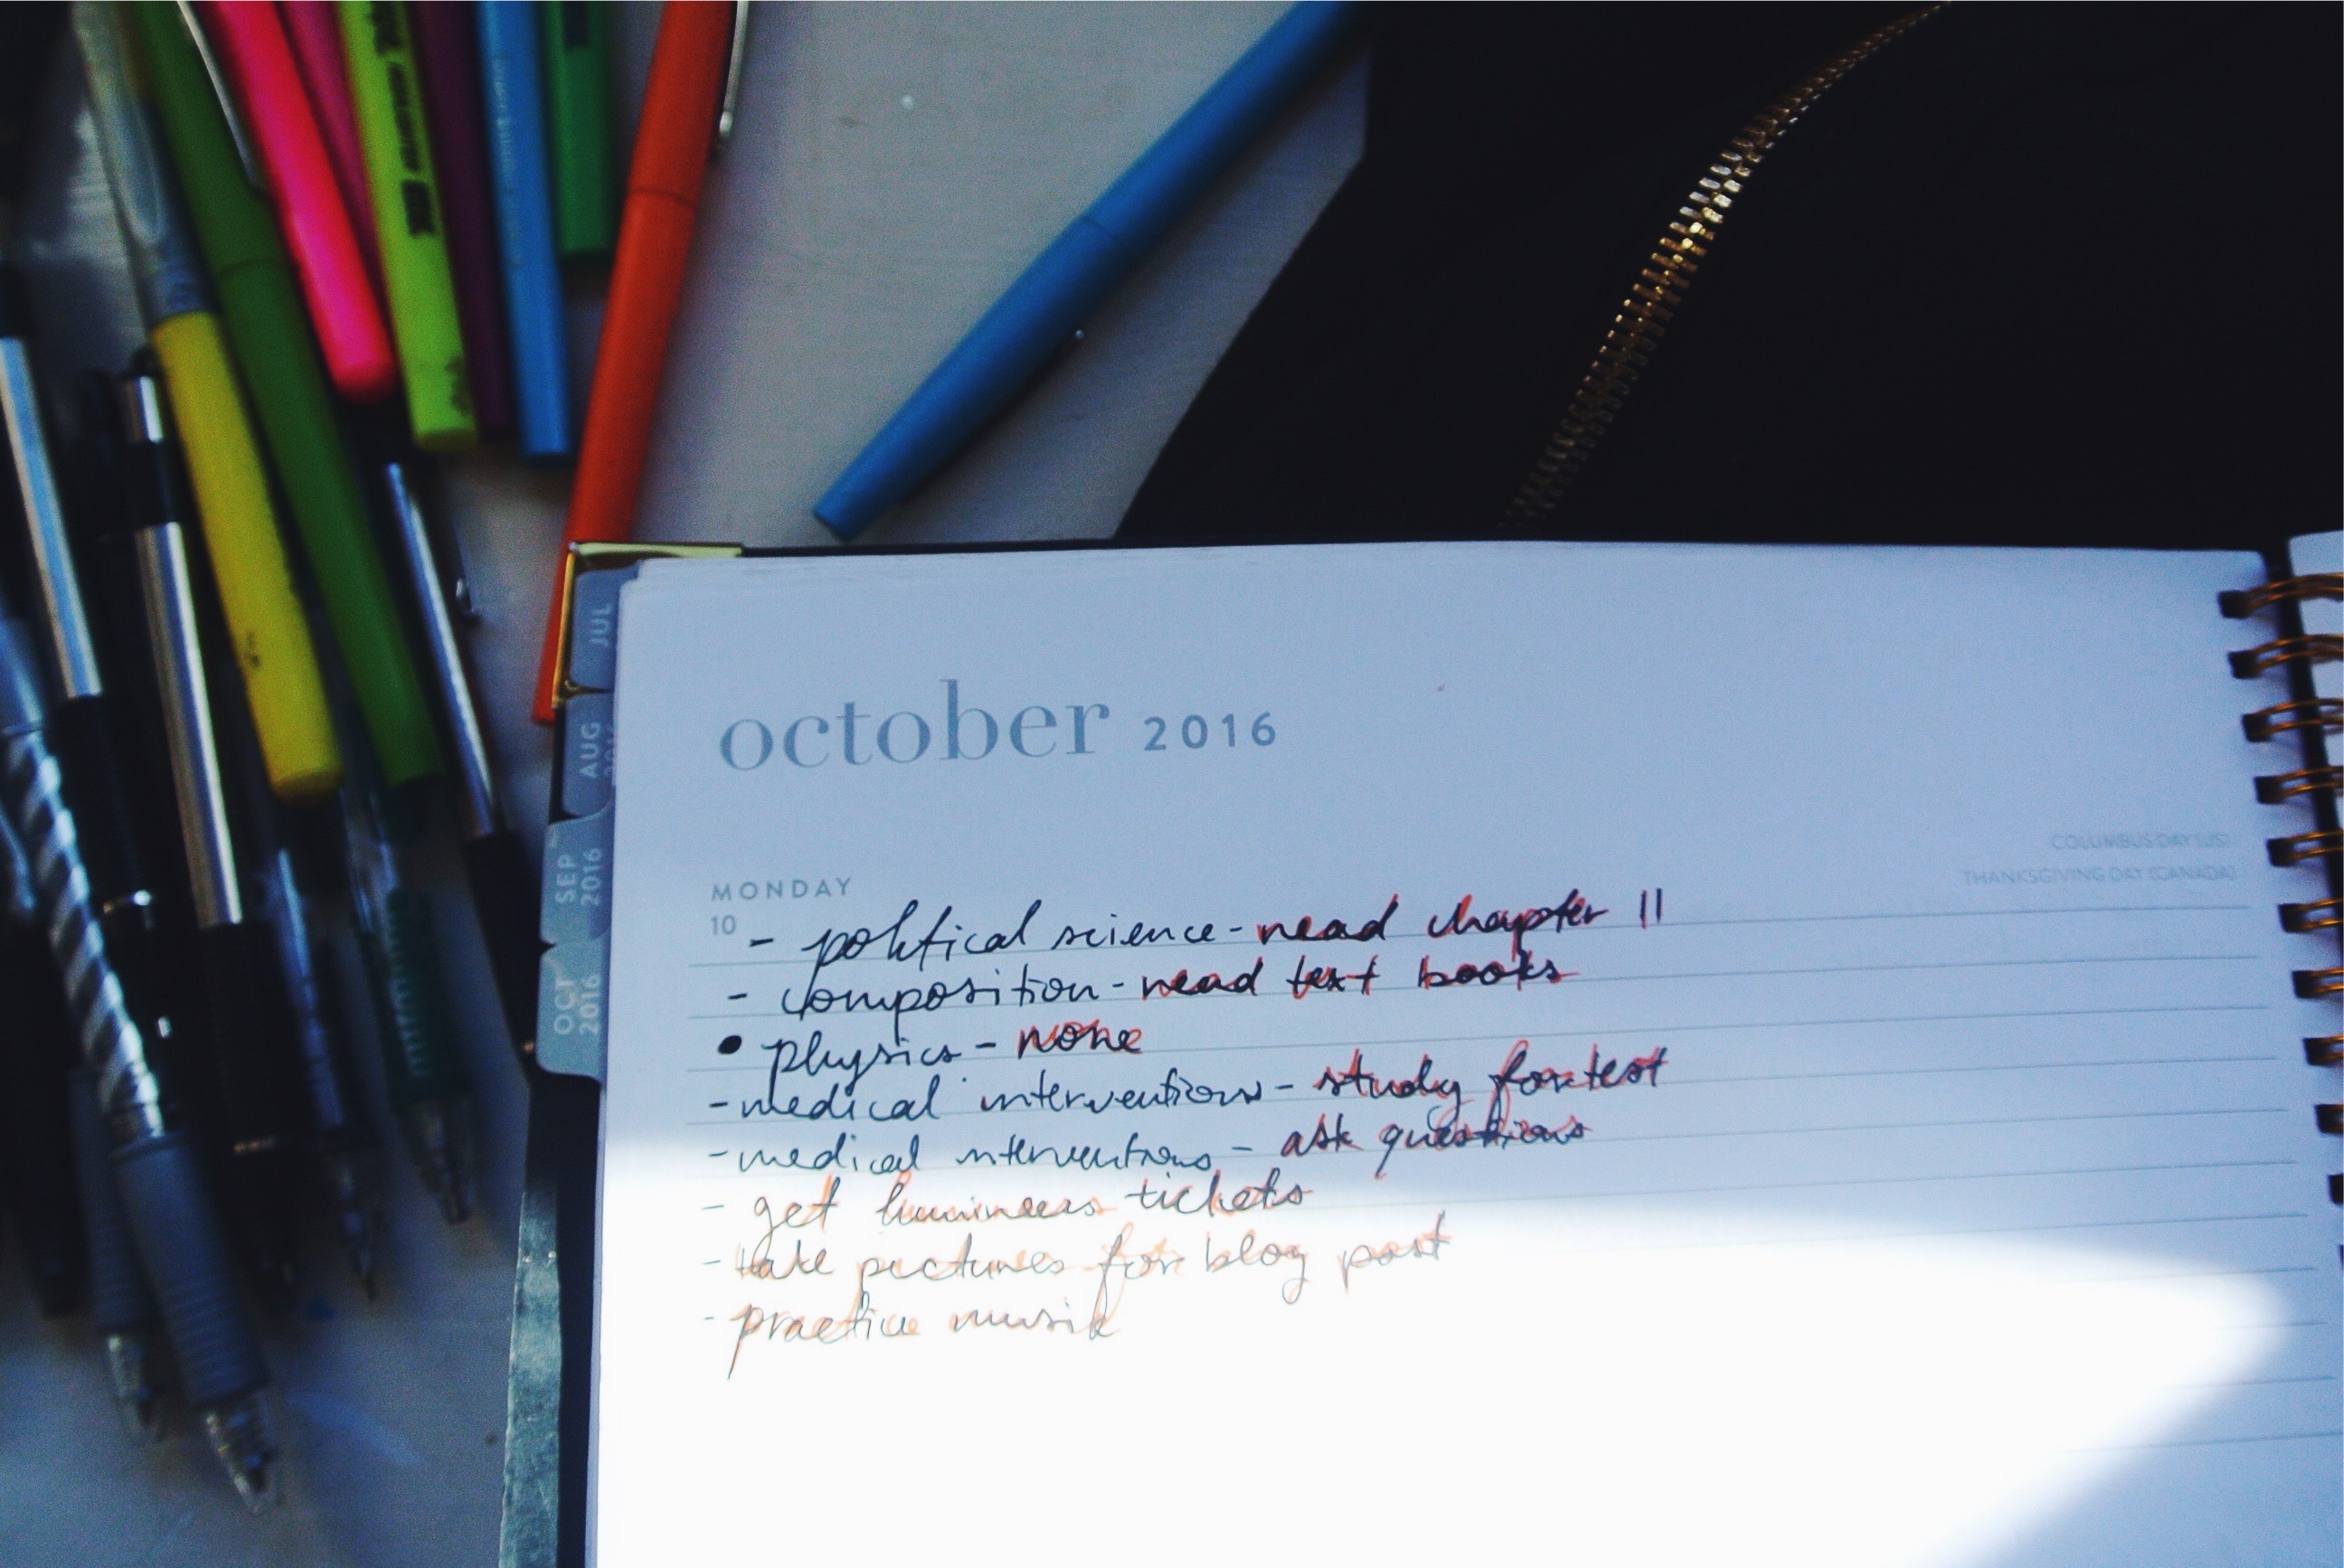 JUL
AUG
2016
SEP
2016
OCT
2016
october 2016
COLUMBUS DAY (US)
THANKSGIVING DAY (CANADA)
MONDAY
10
- political science - read chapter 11
- composition - read text books
• physics - none
- medical interventions - study for test
- medical interventions - ask questions
- get lumineers tickets
- take pictures for blog post
- practice musik